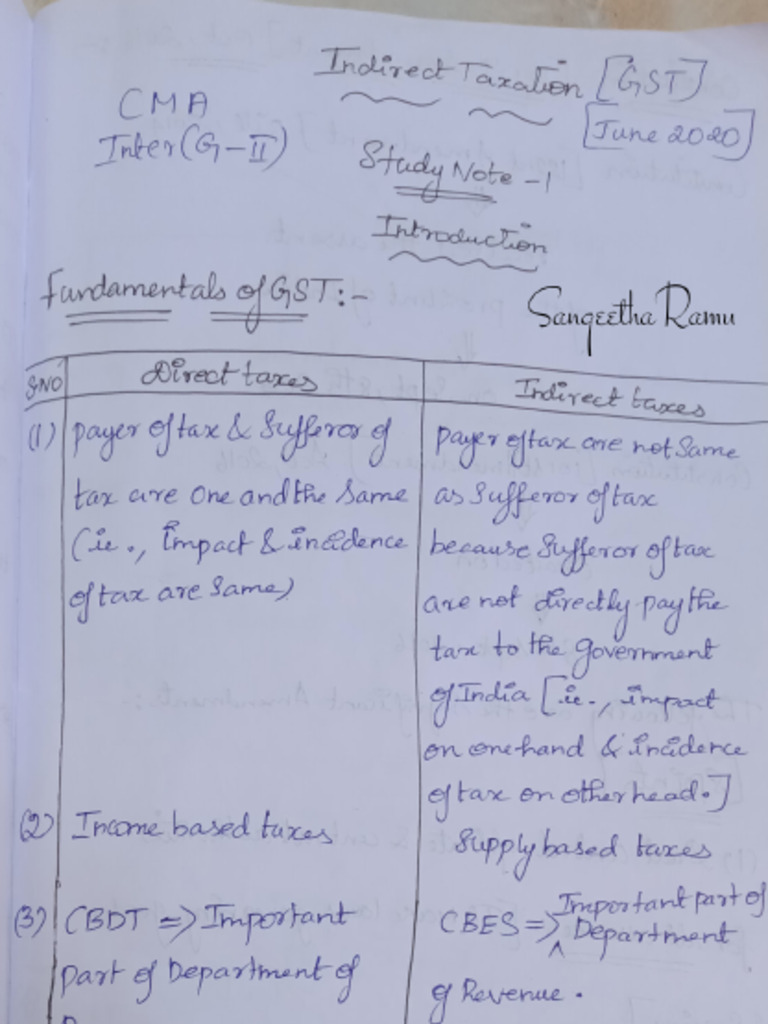 Indirect Taxation [GST]
[June 2020]
CMA
Inter(G-II)
Study Note -1
Introduction
Fundamentals of GST:-
Sangeetha Ramu
S.NO Direct taxes Indirect taxes
(1) payer of tax & Sufferor of
tax are one and the same
(ie., impact & incidence
of tax are same)
payer of tax are not same
as sufferor of tax
because sufferor of tax
are not directly pay the
tax to the government
of India [ie., impact
on one hand & incidence
of tax on other head.]
(2) Income based taxes
Supply based taxes
(3) CBDT => Important
part of Department of
CBES => Important part of
Department
of Revenue.